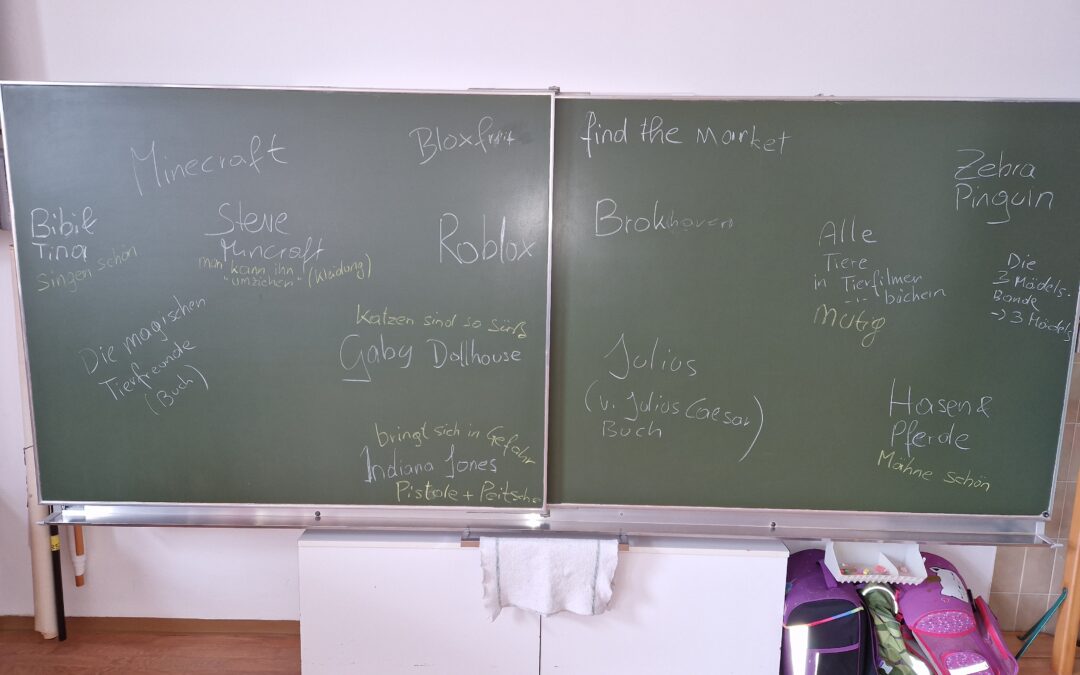 Minecraft
Bloxfruit
Bibi &
Tina
Singen schön
Steve
Muncraft
man kann ihn
"umziehen" (Kleidung)
Roblox
Die magischen
Tierfreunde
(Buch)
Katzen sind so süß
Gaby Dollhouse
bringt sich in Gefahr
Indiana Jones
Pistole + Peitsche
find the Market
Brokhaven
Zebra
Pinguin
Alle
Tiere
in Tierfilmen
-büchern
Mutig
Die
3 Mädels-
Bande
-> 3 Mädels
Julius
(v. Julius Caesar)
Buch
Hasen &
Pferde
Mähne schön